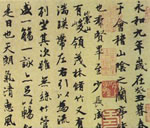 永和九年歲在癸丑
于會稽山陰之蘭
也羣賢畢至少長咸
有崇山峻領茂林脩
湍暎帶左右引以為流
列坐其次雖無絲竹
盛一觴一詠亦足以暢
是日也天朗氣清惠風